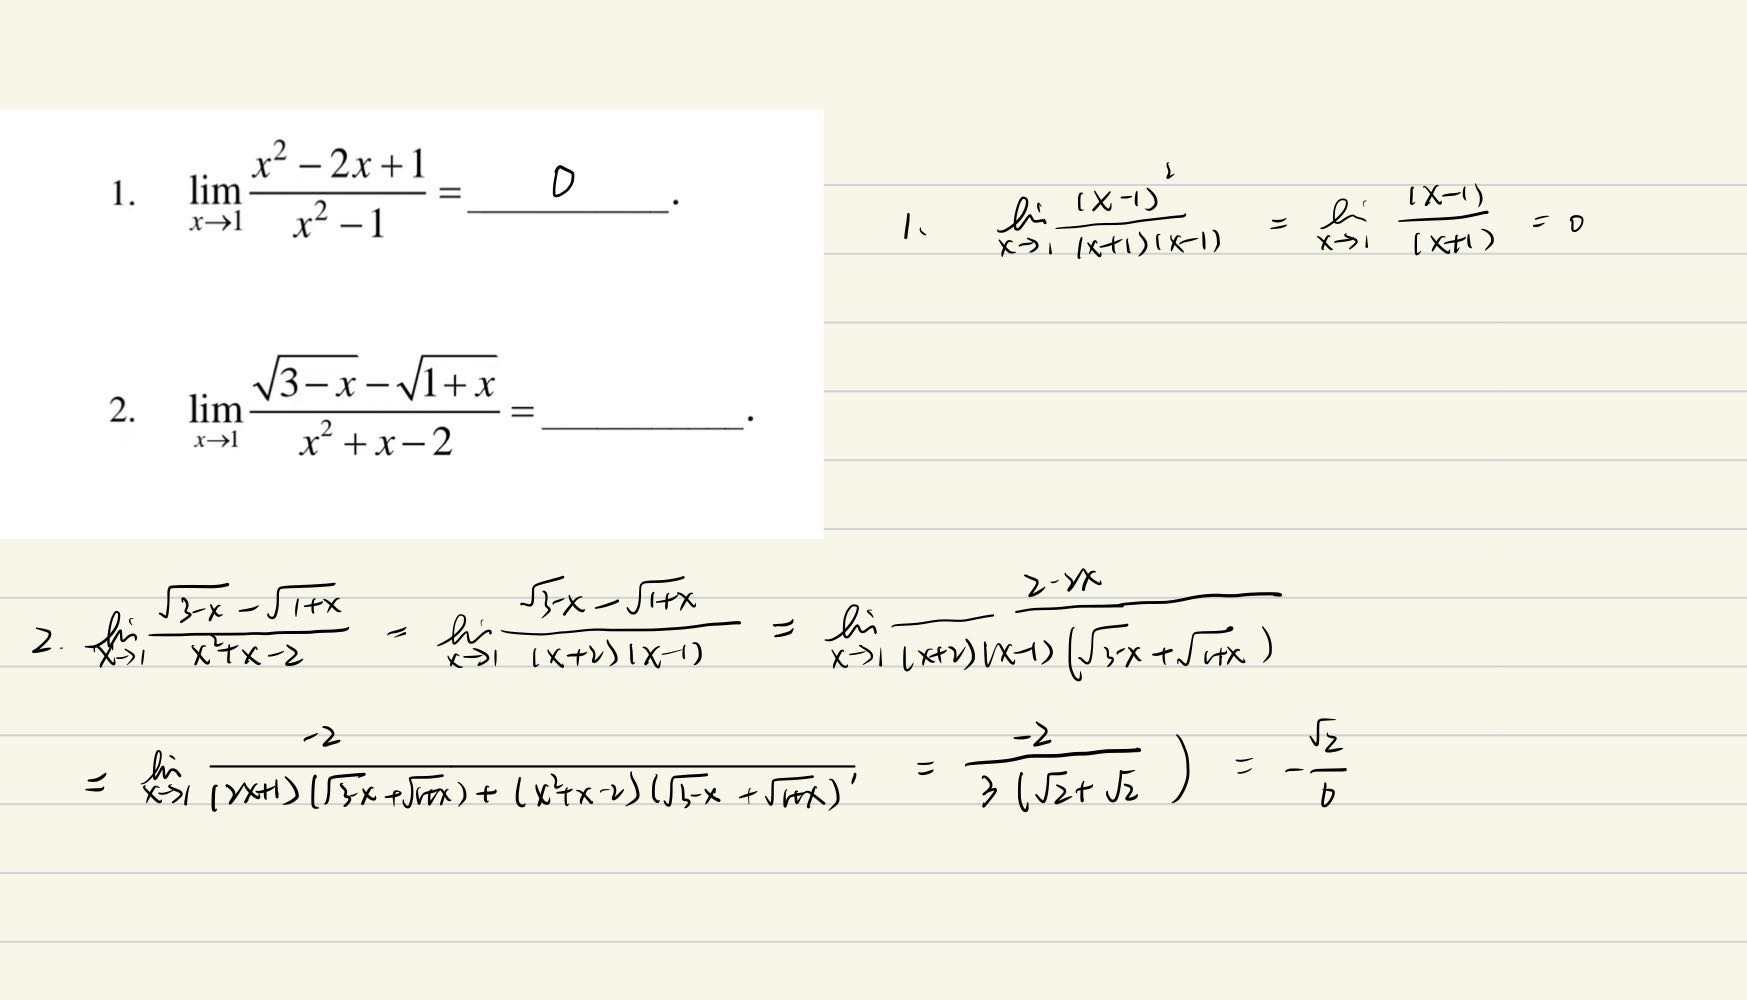 1. lim_{x→1} (x² − 2x + 1)/(x² − 1) = 0 .
1、 lim_{x→1} (x−1)²/((x+1)(x−1)) = lim_{x→1} (x−1)/(x+1) = 0
2. lim_{x→1} (√(3−x) − √(1+x))/(x² + x − 2) = ____ .
2. lim_{x→1} (√(3−x) − √(1+x))/(x²+x−2) = lim_{x→1} (√(3−x) − √(1+x))/((x+2)(x−1)) = lim_{x→1} (2−2x)/((x+2)(x−1)(√(3−x) + √(1+x)))
= lim_{x→1} −2/((2x+1)(√(3−x) + √(1+x)) + (x²+x−2)(√(3−x) + √(1+x))') = −2/(3(√2+√2)) = −√2/6